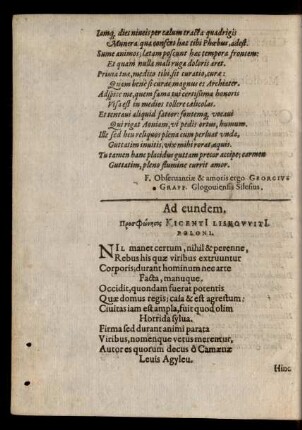 Iamq́, dies niueis per cælum tracta quadrigis
Munera, qua consert has tibi Phœbus, adest.
Sume animos; latam poscunt hæc tempora frontem:
Et quam nulla mali ruga doloris aret.
Priuata tua, medica tibi, sit curatio, cura:
Quem benè si curæ, magnus es Archiater.
Adspice me, quem fama tui certissima honoris
Visa est in medios tollere cælicolas.
Et tentaui aliquid fateor: fontemq́, vocaui
Qui rigat Aoniam, vt pedis ortus, humum.
Ille sed heu reliquos plena cum perluat vnda,
Guttatim inuitis, vix mihi rorat, aquis.
Tu tamen hanc placidus guttam precor accipe; carmen
Guttatim, pleno flumine currit amor.
F. Obseruantiæ & amoris ergo GEORGIVS
GRAPP. Glogouiensis Silesius,
Ad eundem,
Προσφώνησις
POLONI.
NIL manet certum, nihil & perenne,
Rebus his quæ viribus extruuntur
Corporis; durant hominum nec arte
Facta, manuque,
Occidit, quondam fuerat potentis
Quæ domus regis; casa & est agrestum;
Ciuitas iam est ampla, fuit quod olim
Horrida sylua.
Firma sed durant animi parata
Viribus, nomenque vetus merentur,
Autores quorum decus ô Camœnæ
Leuis Agyleu.
Hinc